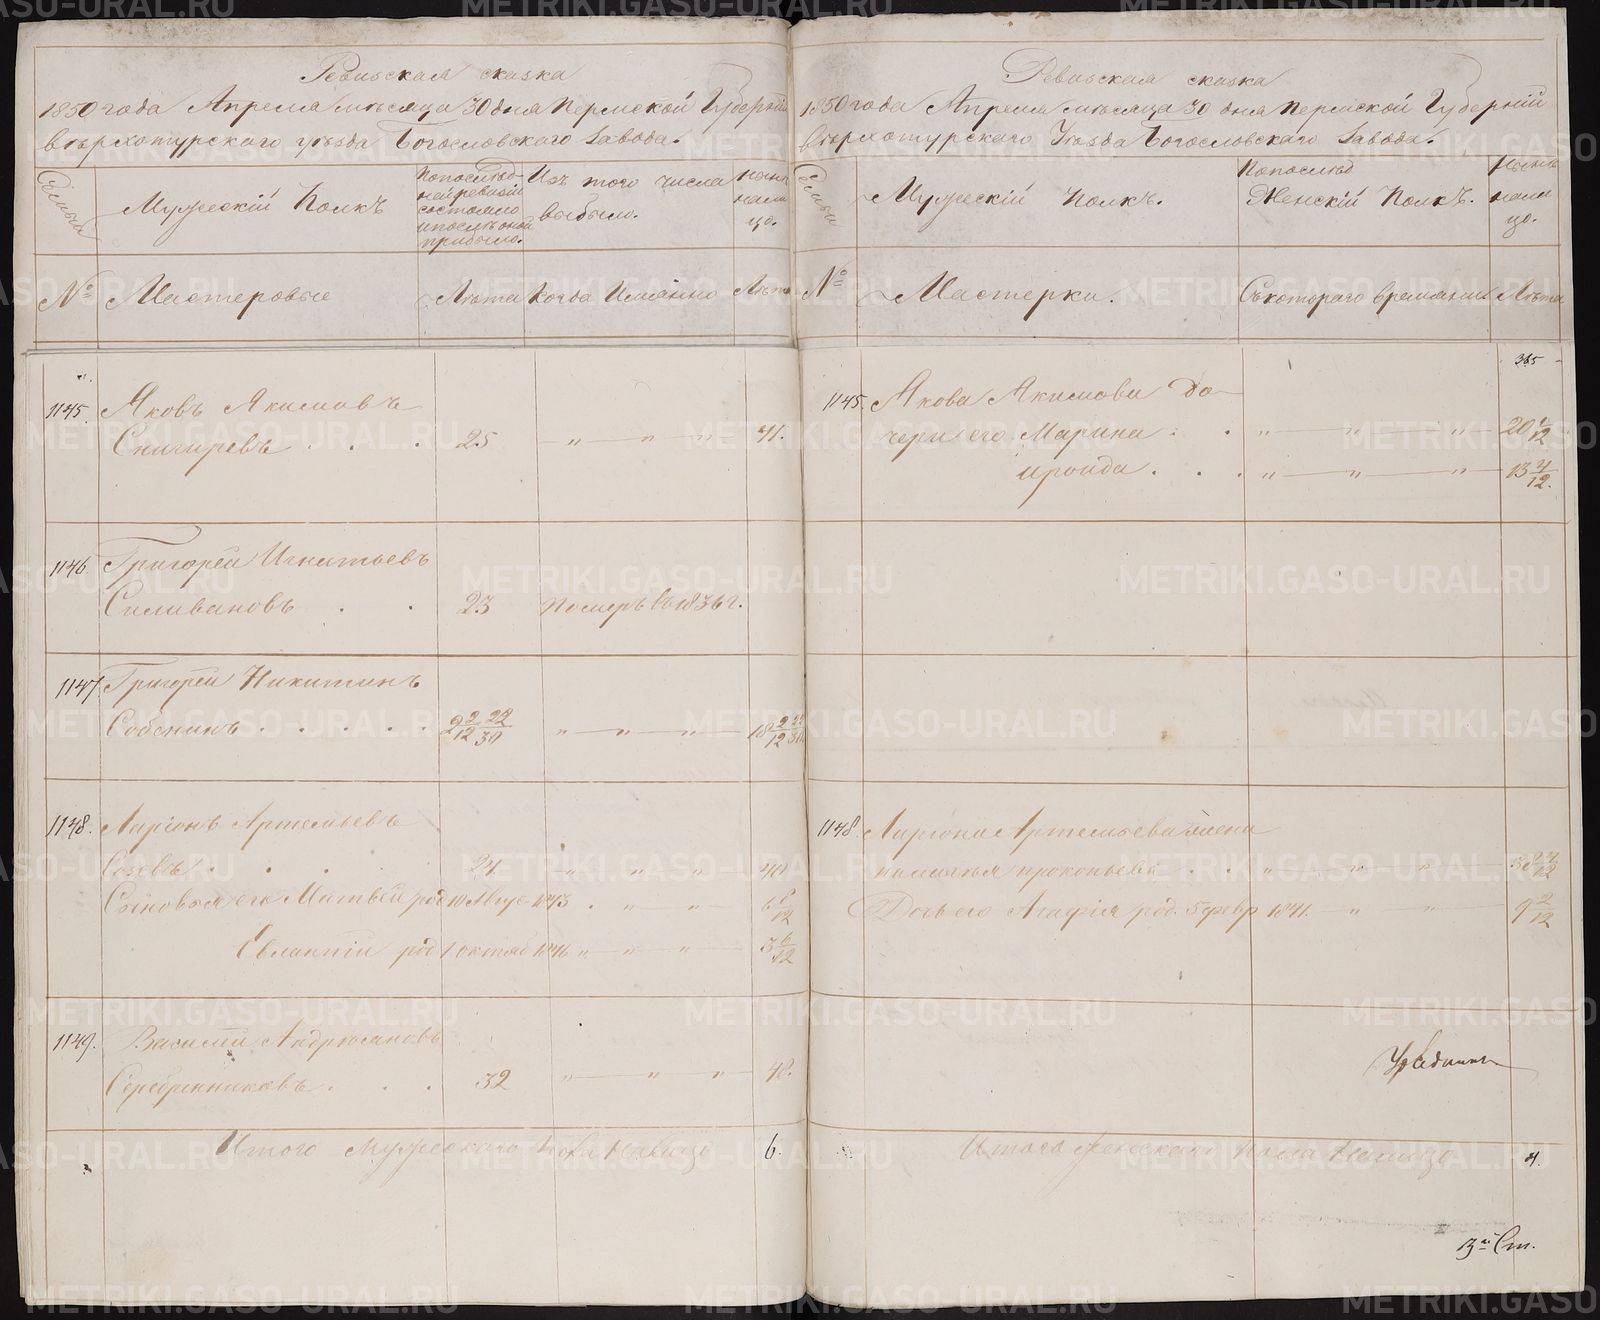 Ревизская сказка
1850 года Апреля месяца 30 дня Пермской Губерніи
Верхотурского уезда Богословского Завода.
Семьи
Мужескій Полкъ
По послед-
ней ревизіи
состояло
и после оной
прибыло.
Изъ того числа
выбыло.
Ныне
нали
цо.
№
Мастеровые
Лета
Когда Имянно
Лета
1145.
Яковъ Якимовъ
Снигиревъ . . .
25
" " "
41.
1146
Григорей Игнатьевъ
Силивановъ . .
23
Померъ въ 1836 г.
1147
Григорей Никитинъ
Собенинъ . . . . .
2 2/12 22/30
" " "
18 2/12 22/30
1148.
Ларіонъ Артемьевъ
24
" " "
40
Сыновья его Матвей род 10 Авгус 1843 . " "
6 8/12
род 1 октяб 1846 " " "
3 6/12
1149.
Василий Андрюяновъ
Серебренниковъ . . .
32
" " "
48.
Итого мужеского пола налицо 6.
Ревизская сказка
1850 года Апреля месяца 30 дня Пермской Губерніи
Верхотурского Уезда Богословского Завода.
Семьи
Мужескій Полкъ.
По послед
Женскій Полкъ.
Ныне
нали
цо.
№
Мастерки.
Съ котораго времяни
Лета
365
1145.
Якова Якимова до-
чери его Марина . . " " "
20 /12
Ироида . . . " " "
13 4/12.
1148.
Ларіона Артемьева жена
прокопьева . . " " "
/12
Дочь его Агафія род. 5 февр 1841. " "
9 2/12
Итого женского пола налицо 4.
3я Ст.
METRIKI.GASO-URAL.RU